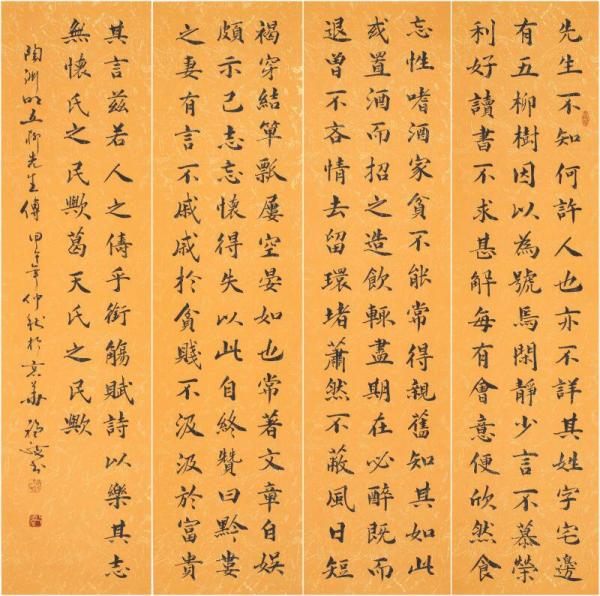 先生不知何許人也亦不詳其姓字宅邊
有五柳樹因以為號焉閑靜少言不慕榮
利好讀書不求甚解每有會意便欣然食
忘性嗜酒家貧不能常得親舊知其如此
或置酒而招之造飲輒盡期在必醉既而
退曾不吝情去留環堵蕭然不蔽風日短
褐穿結簞瓢屢空晏如也常著文章自娛
頗示己志忘懷得失以此自終贊曰黔婁
之妻有言不戚戚於貧賤不汲汲於富貴
其言茲若人之儔乎銜觴賦詩以樂其志
無懷氏之民歟葛天氏之民歟
陶淵明五柳先生傳甲午年仲秋於京華